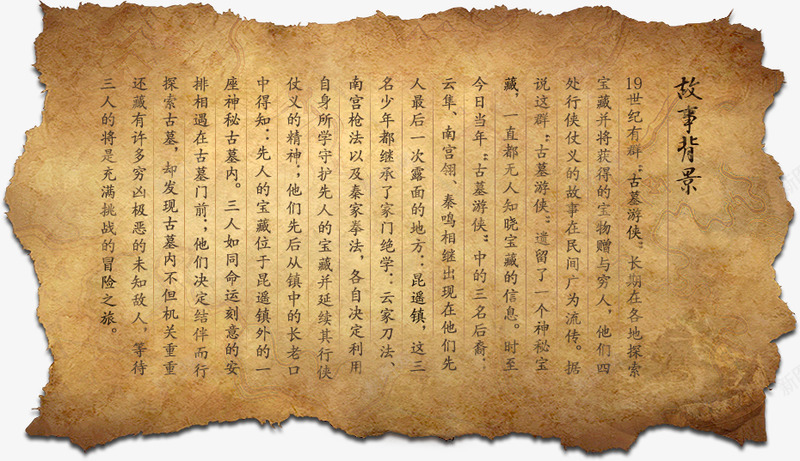 故事背景
19世纪有群“古墓游侠”长期在各地探索
宝藏并将获得的宝物赠与穷人，他们四
处行侠仗义的故事在民间广为流传。据
说这群“古墓游侠”遗留了一个神秘宝
藏，一直都无人知晓宝藏的信息。时至
今日当年“古墓游侠”中的三名后裔：
云隼、南宫翎、秦鸣相继出现在他们先
人最后一次露面的地方：昆遥镇，这三
名少年都继承了家门绝学：云家刀法、
南宫枪法以及秦家拳法，各自决定利用
自身所学守护先人的宝藏并延续其行侠
仗义的精神；他们先后从镇中的长老口
中得知：先人的宝藏位于昆遥镇外的一
座神秘古墓内。三人如同命运刻意的安
排相遇在古墓门前；他们决定结伴而行
探索古墓，却发现古墓内不但机关重重
还藏有许多穷凶极恶的未知敌人，等待
三人的将是充满挑战的冒险之旅。